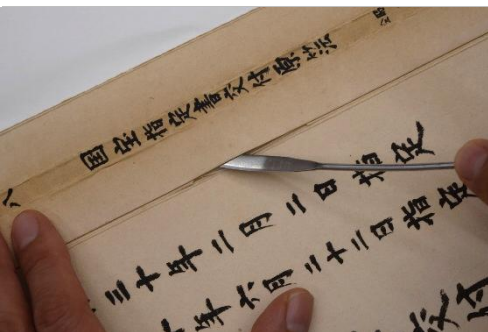 国宝指定書交付原簿
八
三十年二月二日指定
年六月二十二日指定
交付